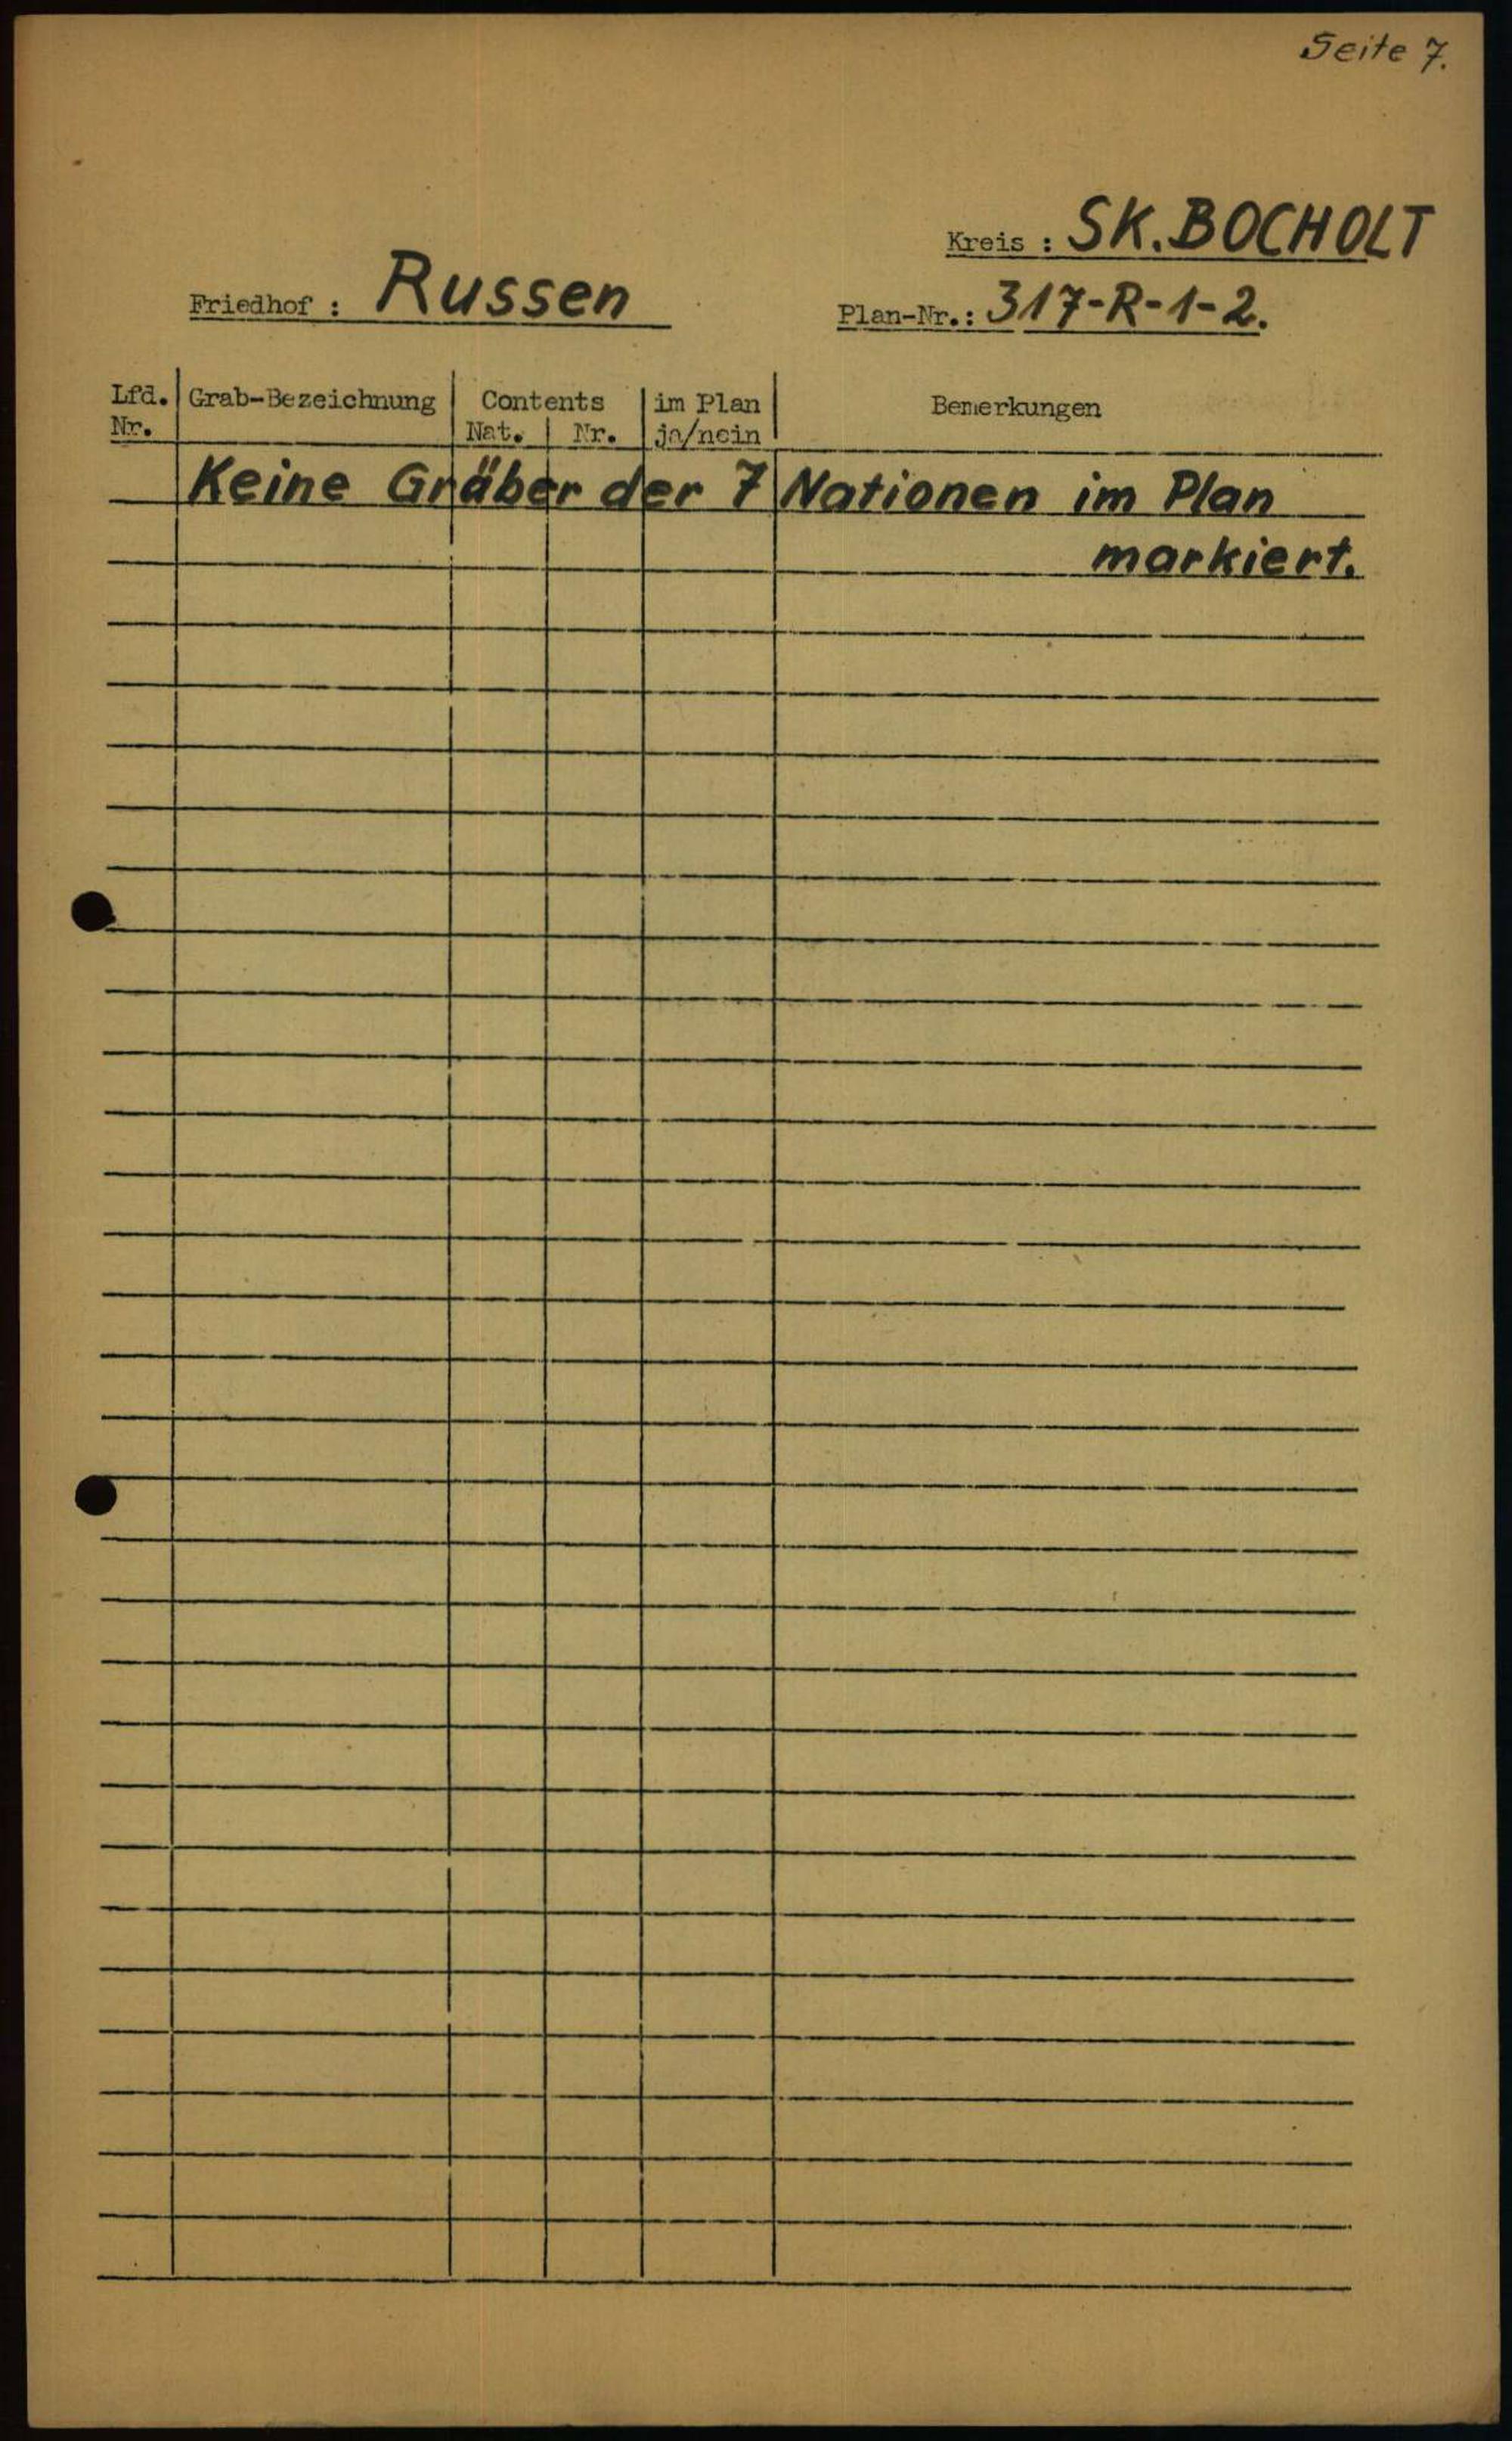 Seite 7.
Kreis : SK. BOCHOLT
Friedhof : Russen
Plan-Nr.: 317-R-1-2.
Lfd. Grab-Bezeichnung Contents im Plan Bemerkungen
Nr. Nat. Nr. ja/nein
Keine Gräber der 7 Nationen im Plan
markiert.